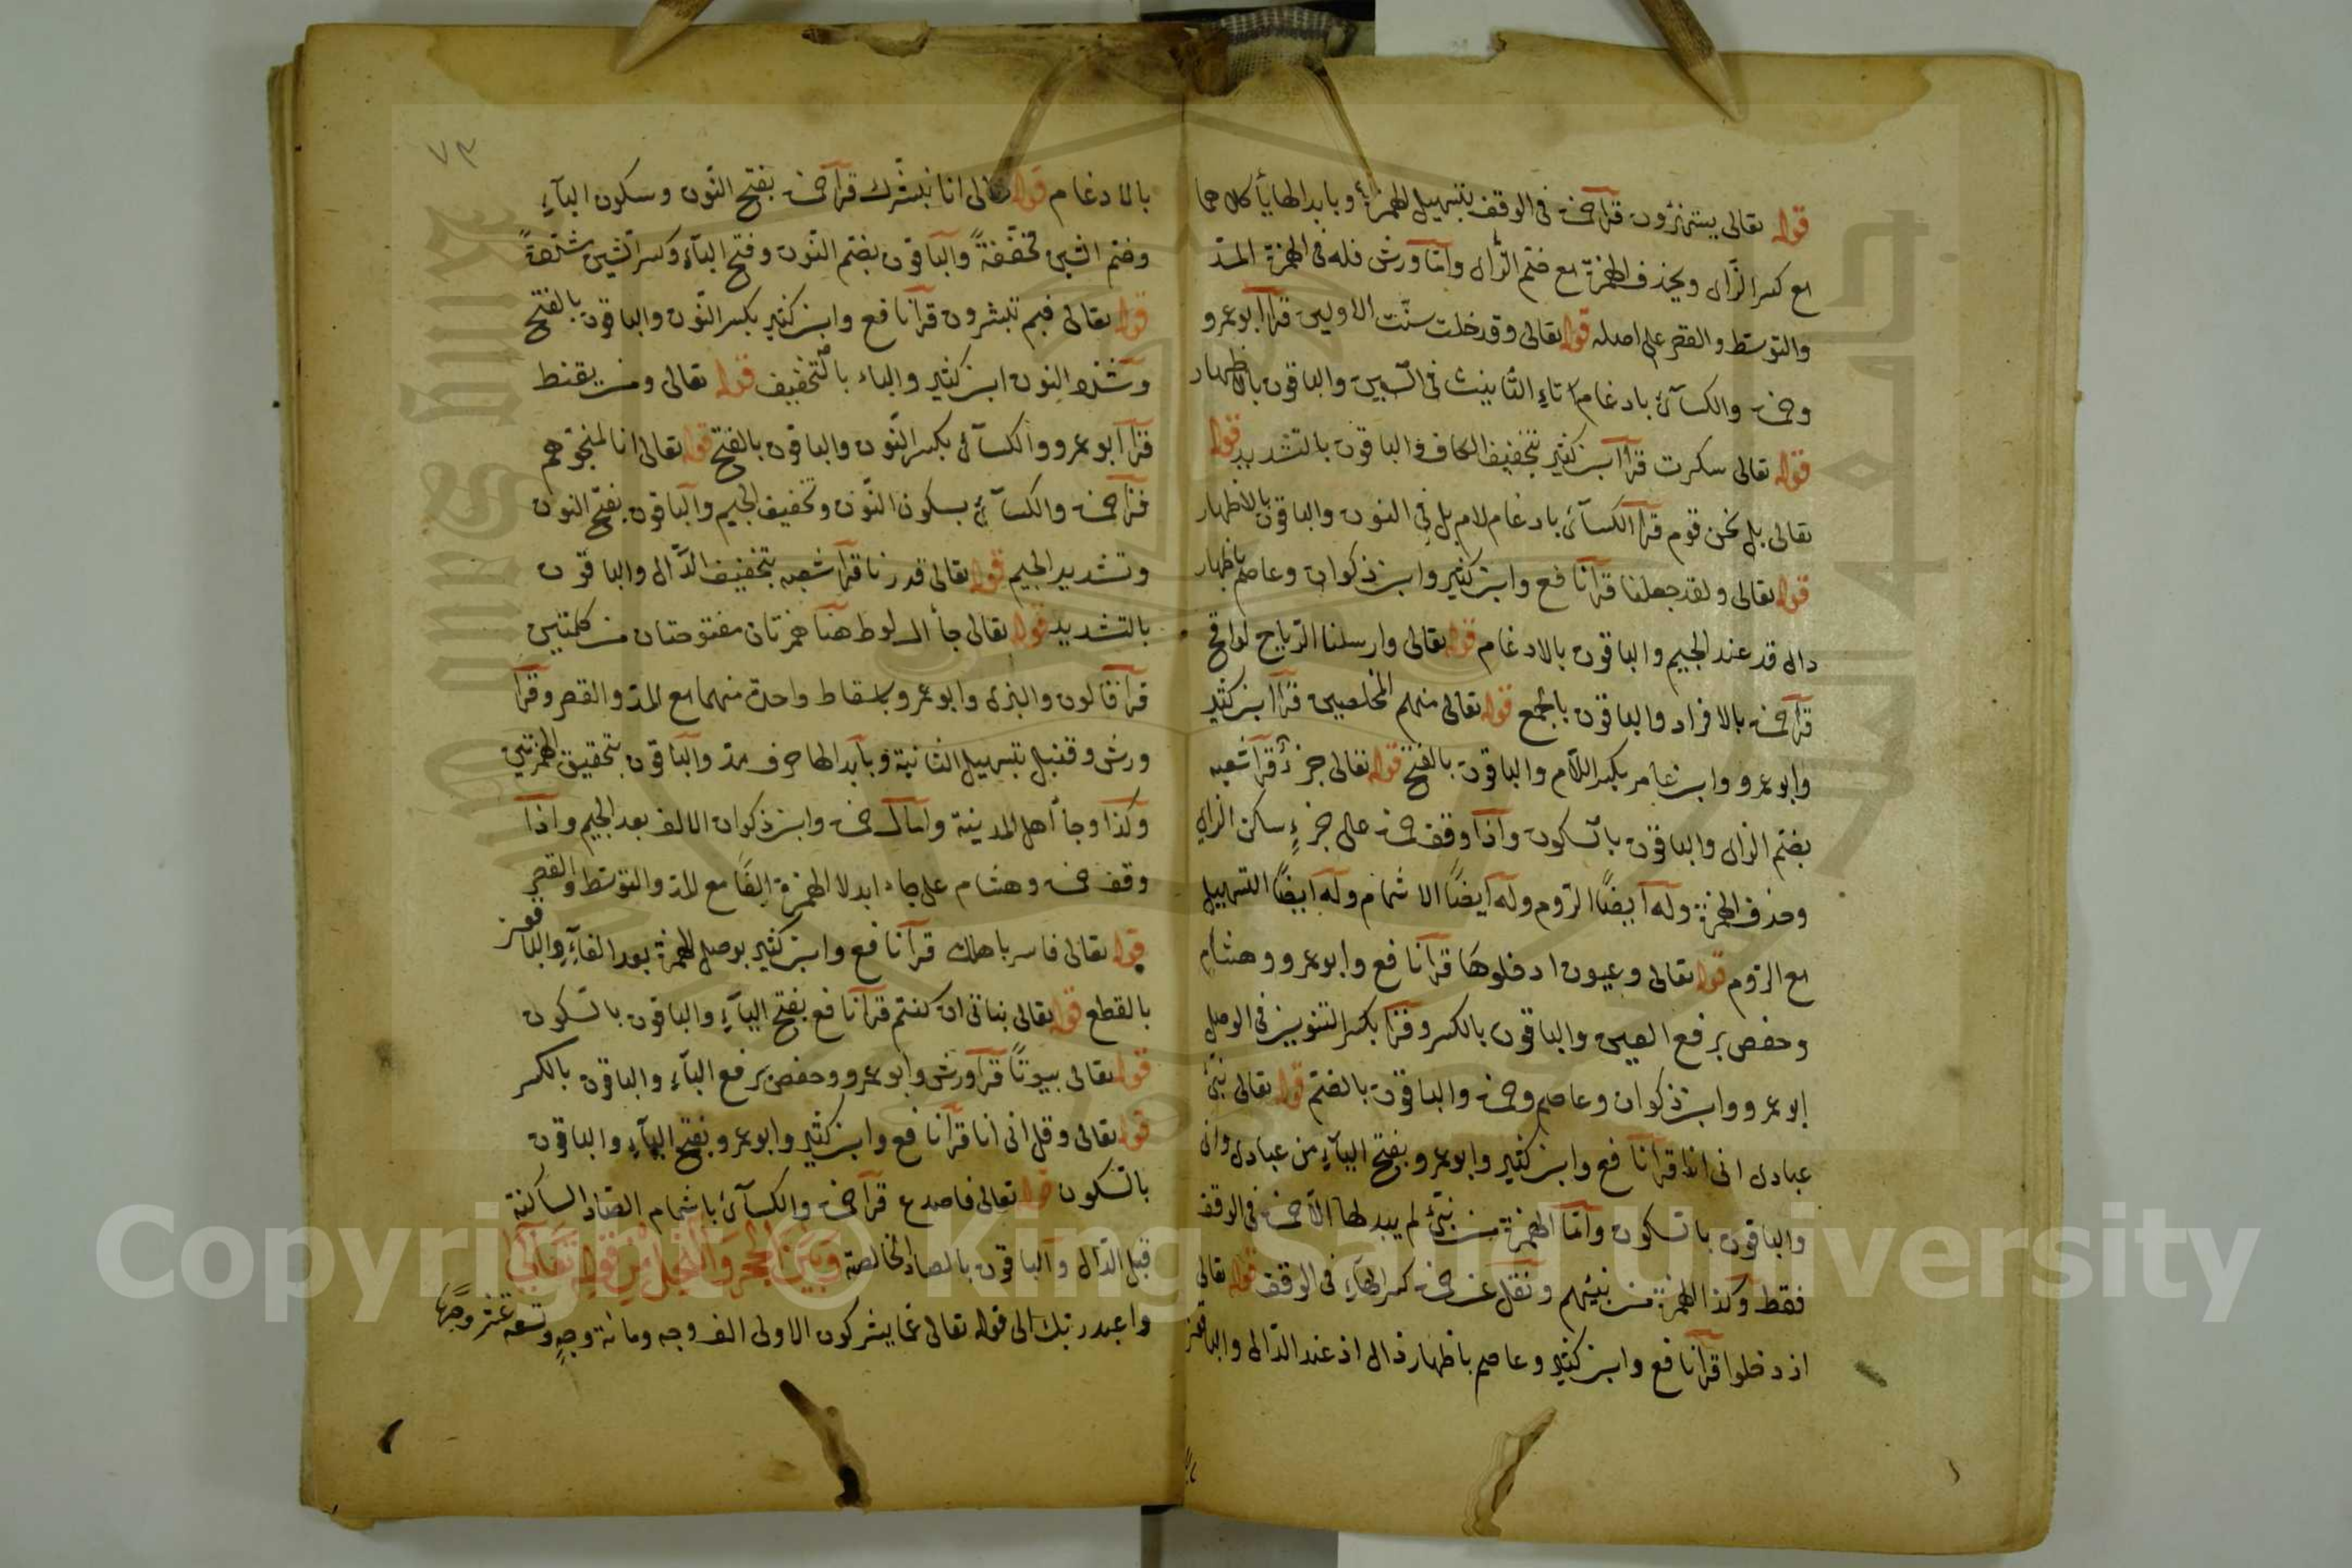 قوله تعالى يستهزؤن قرأ حمزة فى الوقف بتسهيل الهمزة وبابدالها يأ كلاهما
مع كسر الزاى ويحذف الهمزة مع ضم الزاى وامّا ورش فله فى الهمزة المدّ
والتوسّط والقصر على اصله قوله تعالى وقد خلت سنّت الاولين قرأ ابو عمرو
وحمزة والكسآئى بادغام تاءِ التأنيث فى السّين والباقون بالاظهار
قوله تعالى سكرت قرأ ابن كثير بتخفيف الكاف والباقون بالتشديد قوله
تعالى بل نحن قوم قرأ الكسآئى بادغام لام بل فى النون والباقون بالاظهار
قوله تعالى ولقد جعلنا قرأ نافع وابن كثير وابن ذكوان وعاصم باظهار
دال قد عند الجيم والباقون بالادغام قوله تعالى وارسلنا الرّياح لواقح
قرأ حمزة بالافراد والباقون بالجمع قوله تعالى منهم المخلصين قرأ ابن كثير
وابو عمرو وابن عامر بكسر اللّام والباقون بالفتح قوله تعالى جزءٌ قرأ شعبه
بضم الزاى والباقون بالسّكون واذا وقف حمزة على جزءٍ سكن الزاى
وحذف الهمزة وله ايضًا الرّوم وله ايضًا الاشمام وله ايضًا التسهيل
مع الرّوم قوله تعالى وعيون ادخلوها قرأ نافع وابو عمرو وهشام
وحفص برفع العين والباقون بالكسر وقرأ بكسر التنوين فى الوصل
ابو عمرو وابن ذكوان وعاصم وحمزة والباقون بالضمّ قوله تعالى نبّئ
عبادى انى انا قرأ نافع وابن كثير وابو عمرو بفتح اليآءِ من عبادى وانى
والباقون بالسّكون وامّا الهمزة من نبّئ لم يبدلها الّا حمزة فى الوقف
فقط وكذا الهمزة من نبئهم ونقل عن حمزة كسر الهآءِ فى الوقف قوله تعالى
اذ دخلوا قرأ نافع وابن كثير وعاصم باظهار ذال اذ عند الدّال والباقون
٧٣
بالادغام قوله تعالى انا نبشّرك قرأ حمزة بفتح النّون وسكون البآءِ
وضم الشين مخففةً والباقون بضم النّون وفتح البآءِ وكسر الشين مشدّدةً
قوله تعالى فبم تبشرون قرأ نافع وابن كثير بكسر النّون والباقون بالفتح
وشدّد النون ابن كثير والباء بالتّخفيف قوله تعالى ومن يقنط
قرأ ابو عمرو والكسآئى بكسر النّون والباقون بالفتح قوله تعالى انا لمنجوهم
قرأ حمزة والكسآئى بسكون النّون وتخفيف الجيم والباقون بفتح النون
وتشديد الجيم قوله تعالى قدرنا قرأ شعبه بتخفيف الدّال والباقون
بالتشديد قوله تعالى جأ ال لوط هنا همزتان مفتوحتان من كلمتين
قرأ قالون والبزى وابو عمرو باسقاط واحدة منهما مع المدّ والقصر وقرأ
ورش وقنبل بتسهيل الثانية وبابدالها حرف مدّ والباقون بتحقيق الهمزتين
وكذا وجأ اهل المدينة وامال حمزة وابن ذكوان الالف بعد الجيم واذا
وقف حمزة وهشام على جاء ابدلا الهمزة الفًا مع المدّ والتوسّط والقصر
قوله تعالى فاسر باهلك قرأ نافع وابن كثير بوصل الهمزة بعد الفآءِ والباقون
بالقطع قوله تعالى بناتى ان كنتم قرأ نافع بفتح اليآءِ والباقون بالسّكون
قوله تعالى بيوتًا قرأ ورش وابو عمرو وحفص برفع البآءِ والباقون بالكسر
قوله تعالى وقل انى انا قرأ نافع وابن كثير وابو عمرو بفتح اليآءِ والباقون
بالسّكون قوله تعالى فاصدع قرأ حمزة والكسآئى باشمام الصّاد الساكنة
قبل الدّال والباقون بالصاد الخالصة وَبَيْنَ الْحِجْرِ وَالنَّحْلِ مِنْ قَوْلِهِ تَعَالَى
واعبد ربّك الى قوله تعالى عمّا يشركون الاولى الف وجه ومائة وجهٍ وتسعة عشر وجهًا